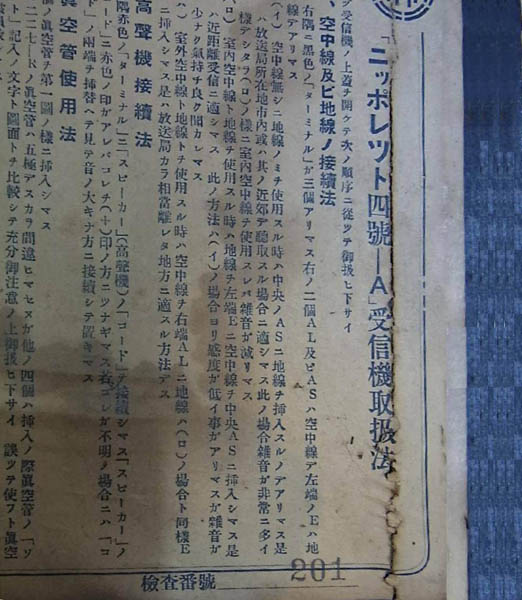 「ニッポレット四號―A」受信機取扱法
受信機ノ上蓋ヲ開ケテ次ノ順序ニ從ッテ御扱ヒ下サイ
、空中線及ビ地線ノ接續法
右隅ニ黑色ノ「ターミナル」ガ三個アリマス右ノ二個AL及ビASハ空中線デ左端ノEハ地
線デアリマス
(イ) 空中線無シニ地線ノミヲ使用スル時ハ中央ノASニ地線ヲ挿入スルノデアリマス是
ハ放送局所在地市內或ハ其ノ近郊デ聽取スル場合ニ適シマス此ノ場合雜音ガ非常ニ多イ
樣デシタラ(ロ)ノ樣ニ室內空中線ヲ使用スレバ雜音ガ減リマス
(ロ) 室內空中線ト地線ヲ使用スル時ハ地線ヲ左端Eニ空中線ヲ中央ASニ挿入シマス是
ハ近距離受信ニ適シマス 此ノ方法ハ(イ)ノ場合ヨリ感度ガ低イ事ガアリマスガ雜音ガ
少ナク氣持チ良ク聞カレマス
) 室外空中線ト地線トヲ使用スル時ハ空中線ヲ右端ALニ地線ハ(ロ)ノ場合ト同樣E
ニ挿入シマス是ハ放送局カラ相當離レタ地方ニ適スル方法デス
高聲機接續法
隅赤色ノ「ターミナル」ニ「スピーカー」(高聲機)ノ「コード」ヲ接續シマス「スピーカー」ノ
ード」ニ赤色ノ印ガアレバコレヲ(+)印ノ方ニツナギマス若シコレガ不明ノ場合ニハ「コ
ド」ノ兩端ヲ挿替ヘテ見テ音ノ大キナ方ニ接續シテ置キマス
眞空管使用法
個ノ眞空管ヲ第一圖ノ樣ニ挿入シマス
二二七―Rノ眞空管ハ五極デスカラ間違ヒマセヌガ他ノ四個ハ挿入ノ際眞空管ノ「ソ
ト」記入ノ文字ト圖面トヲ比較シテ充分御注意ノ上御扱ヒ下サイ 誤ッテ使フト眞空
檢査番號 201